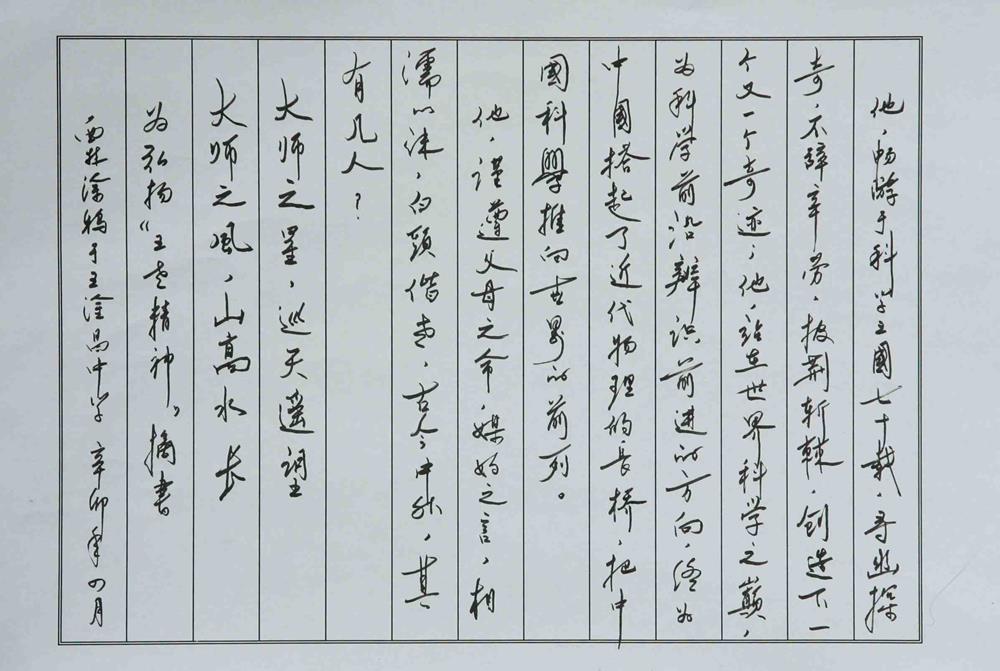 他，畅游于科学王國七十载，寻幽探
奇，不辞辛劳，披荆斩棘，创造下一
个又一个奇迹；他，站在世界科学之巅，
为科学前沿辨识前进的方向，终为
中國搭起了近代物理的長桥，把中
國科學推向世界的前列。
他，谨遵父母之命，媒妁之言，相
濡以沫，白頭偕老，古今中外，其
有几人？
大师之星，巡天遥望
大师之風，山高水长
为弘扬“王老精神”摘书
西林涂鸦于王淦昌中学 辛卯年四月